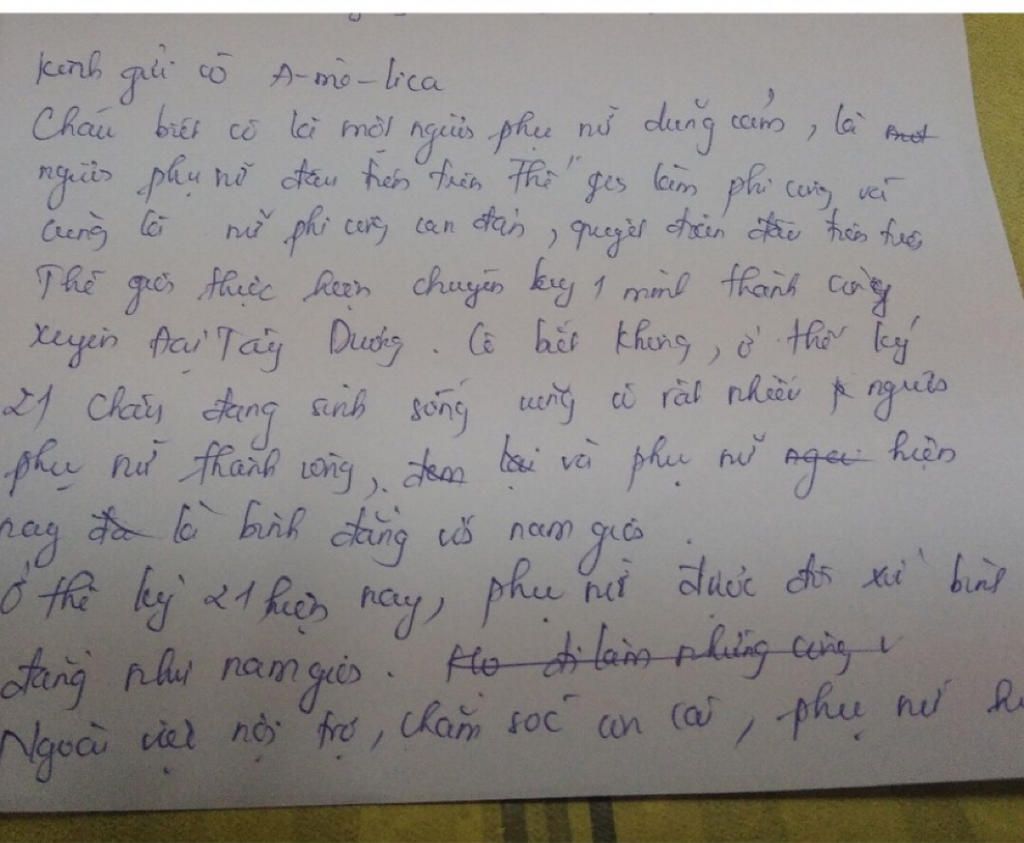 Kính gửi cô A-mê-lica
Cháu biết cô là một người phụ nữ dũng cảm, là một
người phụ nữ đầu tiên trên Thế giới làm phi công và
cũng là nữ phi công can đản, quyết đoán đầu tiên trên
Thế giới thực hiện chuyến bay 1 mình thành công
xuyên Đại Tây Dương. Cô biết không, ở thế kỷ
21 cháu đang sinh sống cũng có rất nhiều người
phụ nữ thành công, đem lại và phụ nữ hiện
nay đã là bình đẳng với nam giới.
Ở thế kỷ 21 hiện nay, phụ nữ được đối xử bình
đẳng như nam giới. Họ đi làm những công v
Ngoài việc nội trợ, chăm sóc con cái, phụ nữ